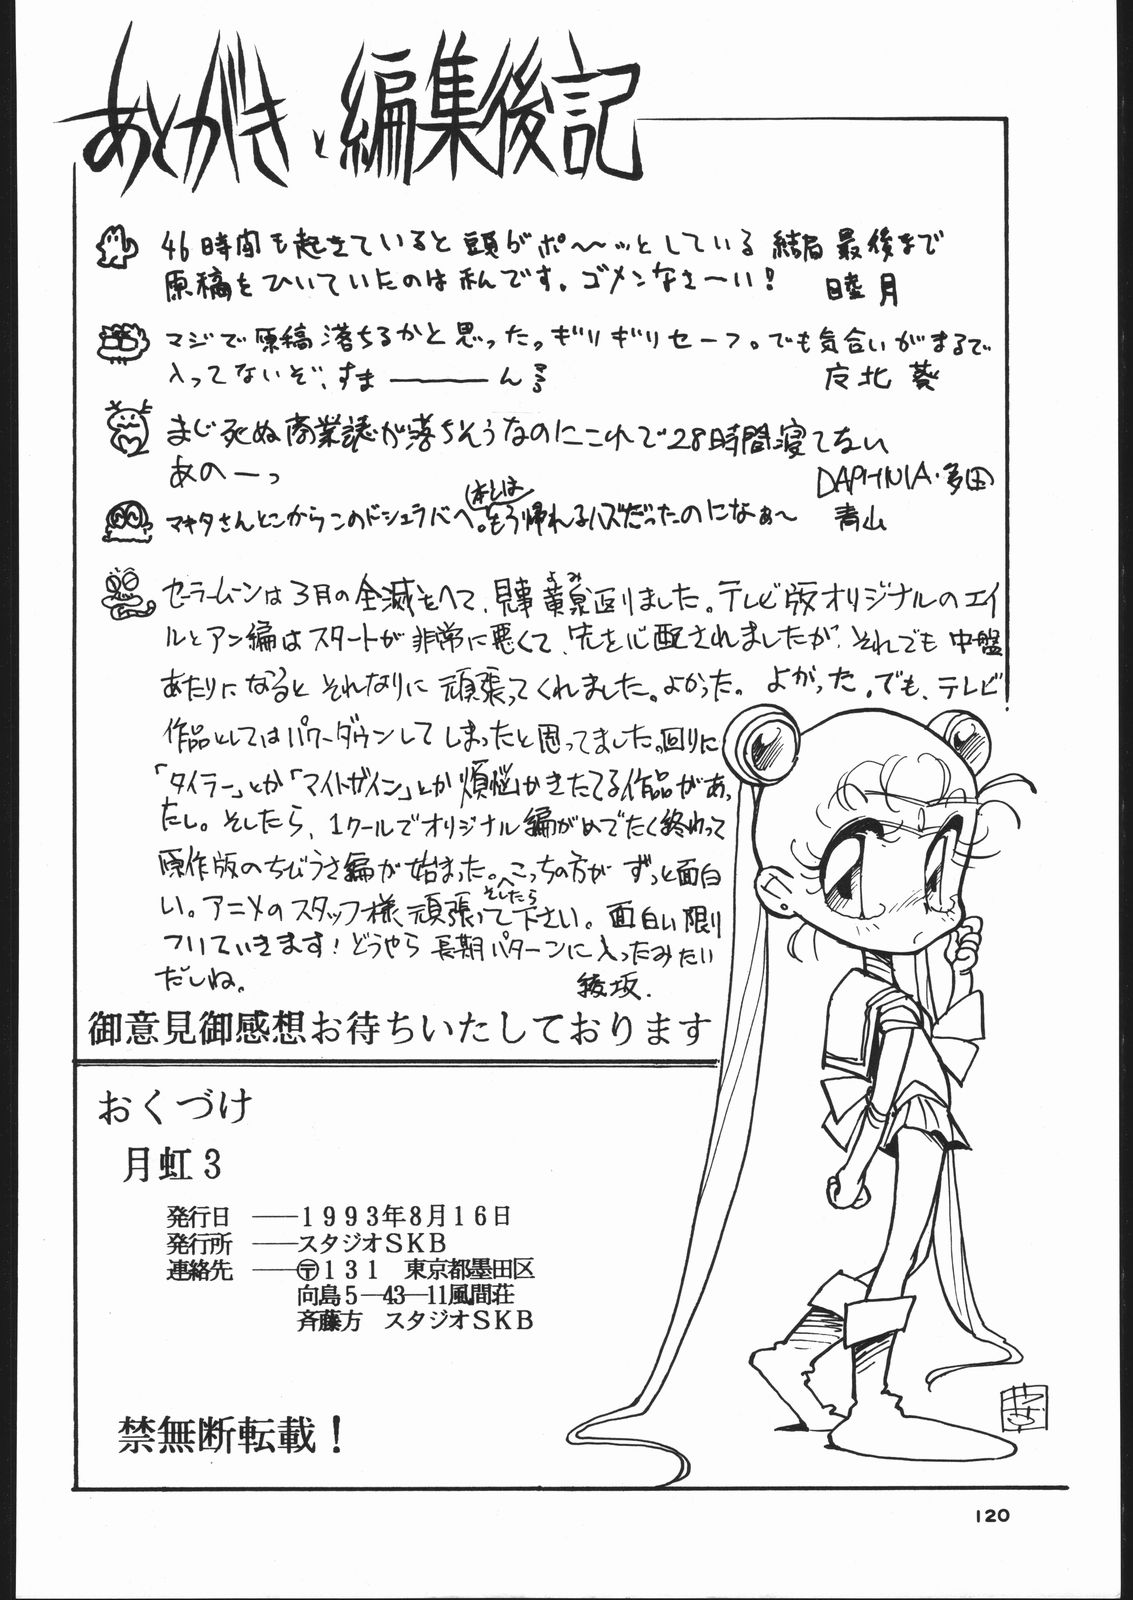 あとがきと編集後記
46時間も起きていると頭がポ〜ッとしている 結局最後まで
原稿をひいていたのは私んです。ゴメンなさーい! 睦月
マジで原稿落ちるかと思ったっギリギリセーフ。でも気合いがまるで
入ってないぞ、すま――――ん 広北 葵
まじ死ぬ商業誌が落ちそうなのにこれで28時間寝てない
あのーっ DAPHNIA・多田
マキタさんとこからこのドシュラバへ。(本とは)もう帰れるハズだったのになぁ〜 青山
セーラームーンは3月の全滅をへて、見事黄泉返りました。テレビ版オリジナルのエイ
よみ
ルとアン編はスタートが非常に悪くて、先を心配されましたが、それでも中盤
あたりになると それなりに 頑張ってくれました。よかった。よかった。でも、テレビ
作品としてはパワーダウンしてしまったと思ってました。回りに
「タイラー」とか「マイトガイン」とか煩悩かきたてる作品があっ
たし。そしたら、1クールでオリジナル編がめでたく終わって
原作版のちびうさ編が始まった。こっちの方が ずっと面白
い。アニメのスタッフ様、頑張って下さい。面白い限り
そしたら
ついていきます!どうやら 長期パターンに入ったみたい
だしね。 綾坂.
御意見御感想お待ちいたしております
おくづけ
月虹3
発行日 ――1993年8月16日
発行所 ――スタジオSKB
連絡先 ――〒131 東京都墨田区
向島5―43―11風間荘
斉藤方 スタジオSKB
禁無断転載!
120